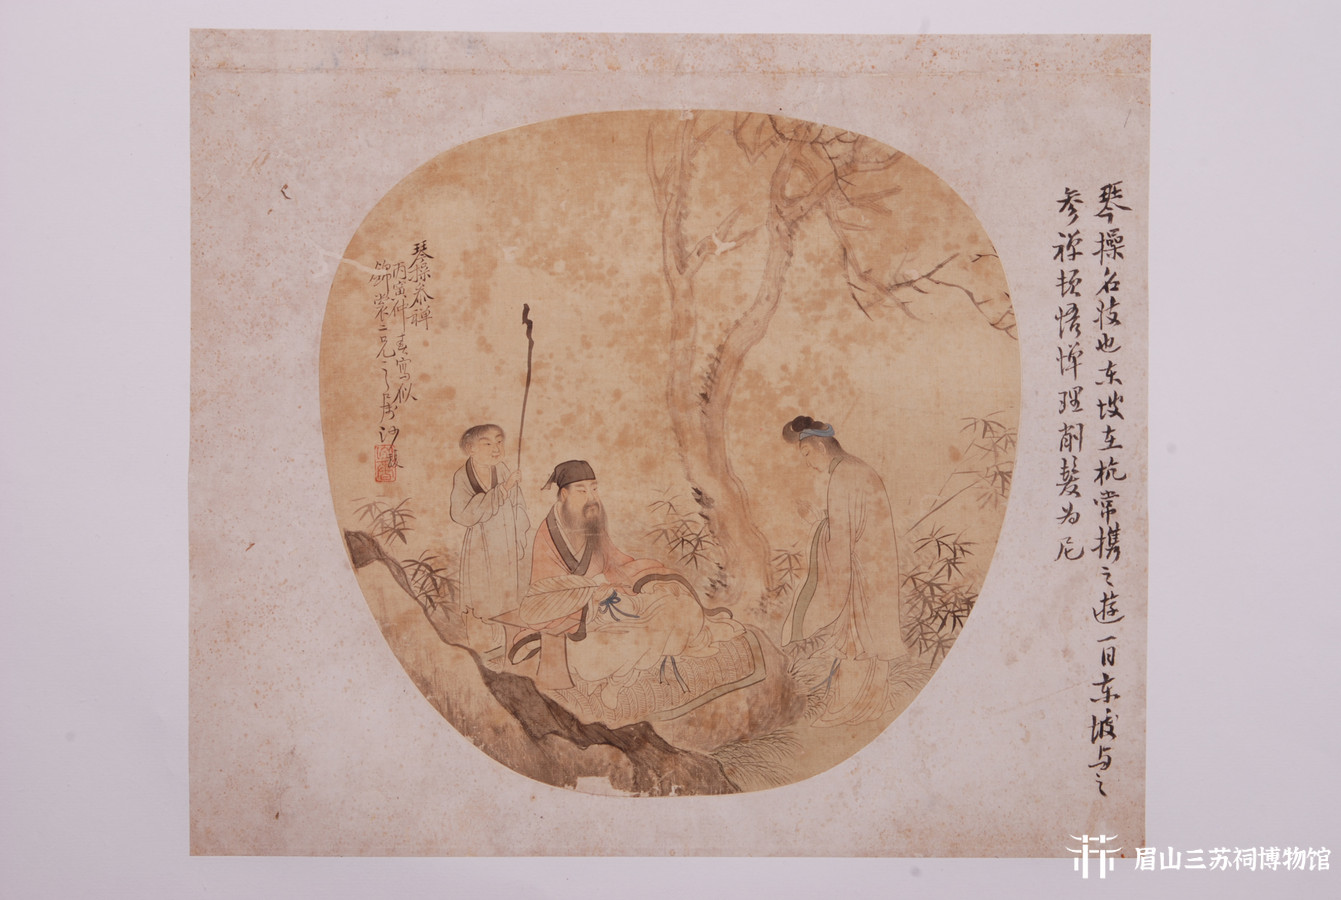 琴操名妓也东坡在杭常携之遊一日东坡与之
参禅顿悟惮理削髮为尼
琴操参禅
丙寅仲春寫似
錦裳二兄之属
眉山三苏祠博物馆